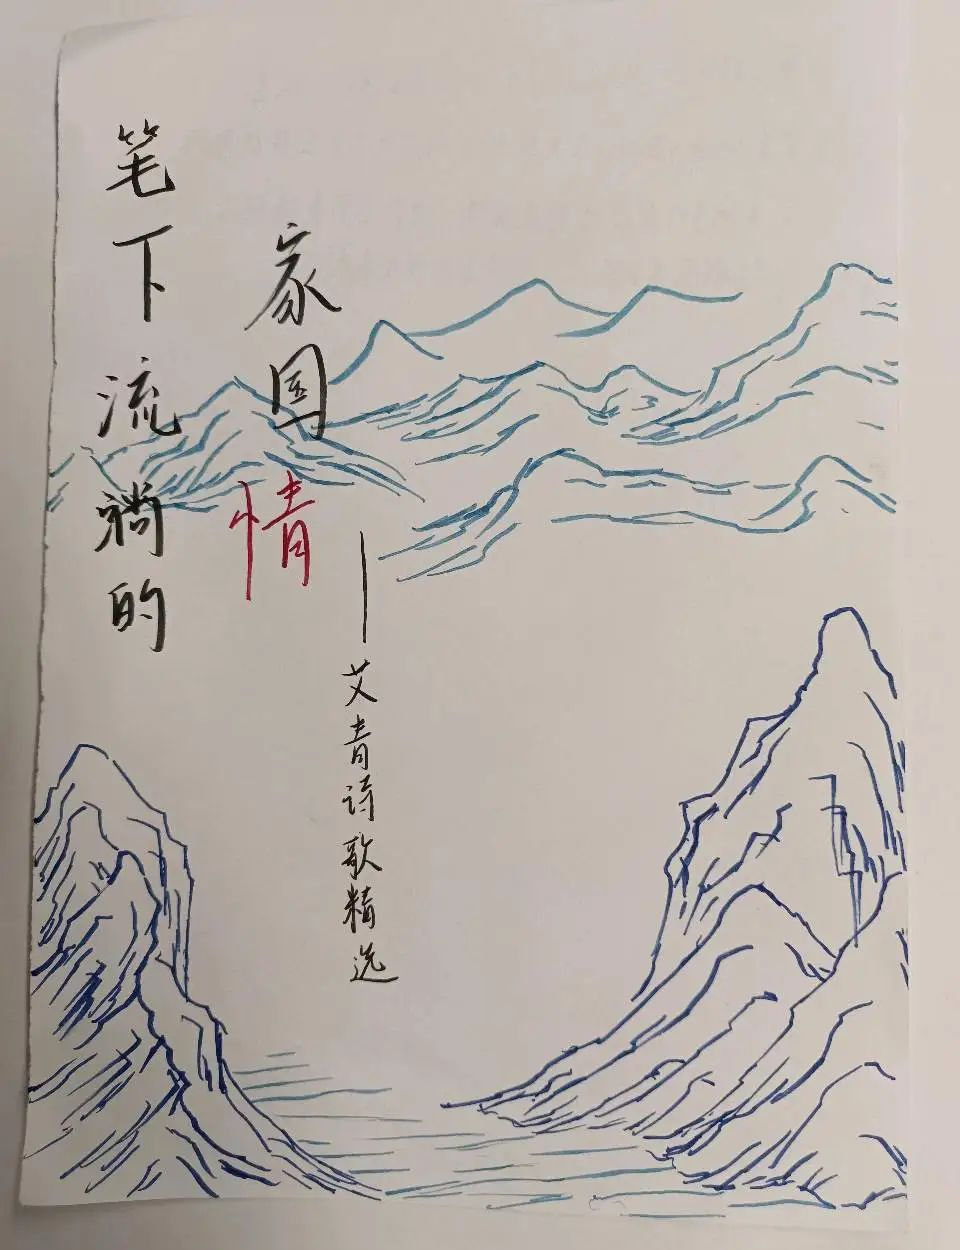 笔下流淌的
家国情
——艾青诗歌精选